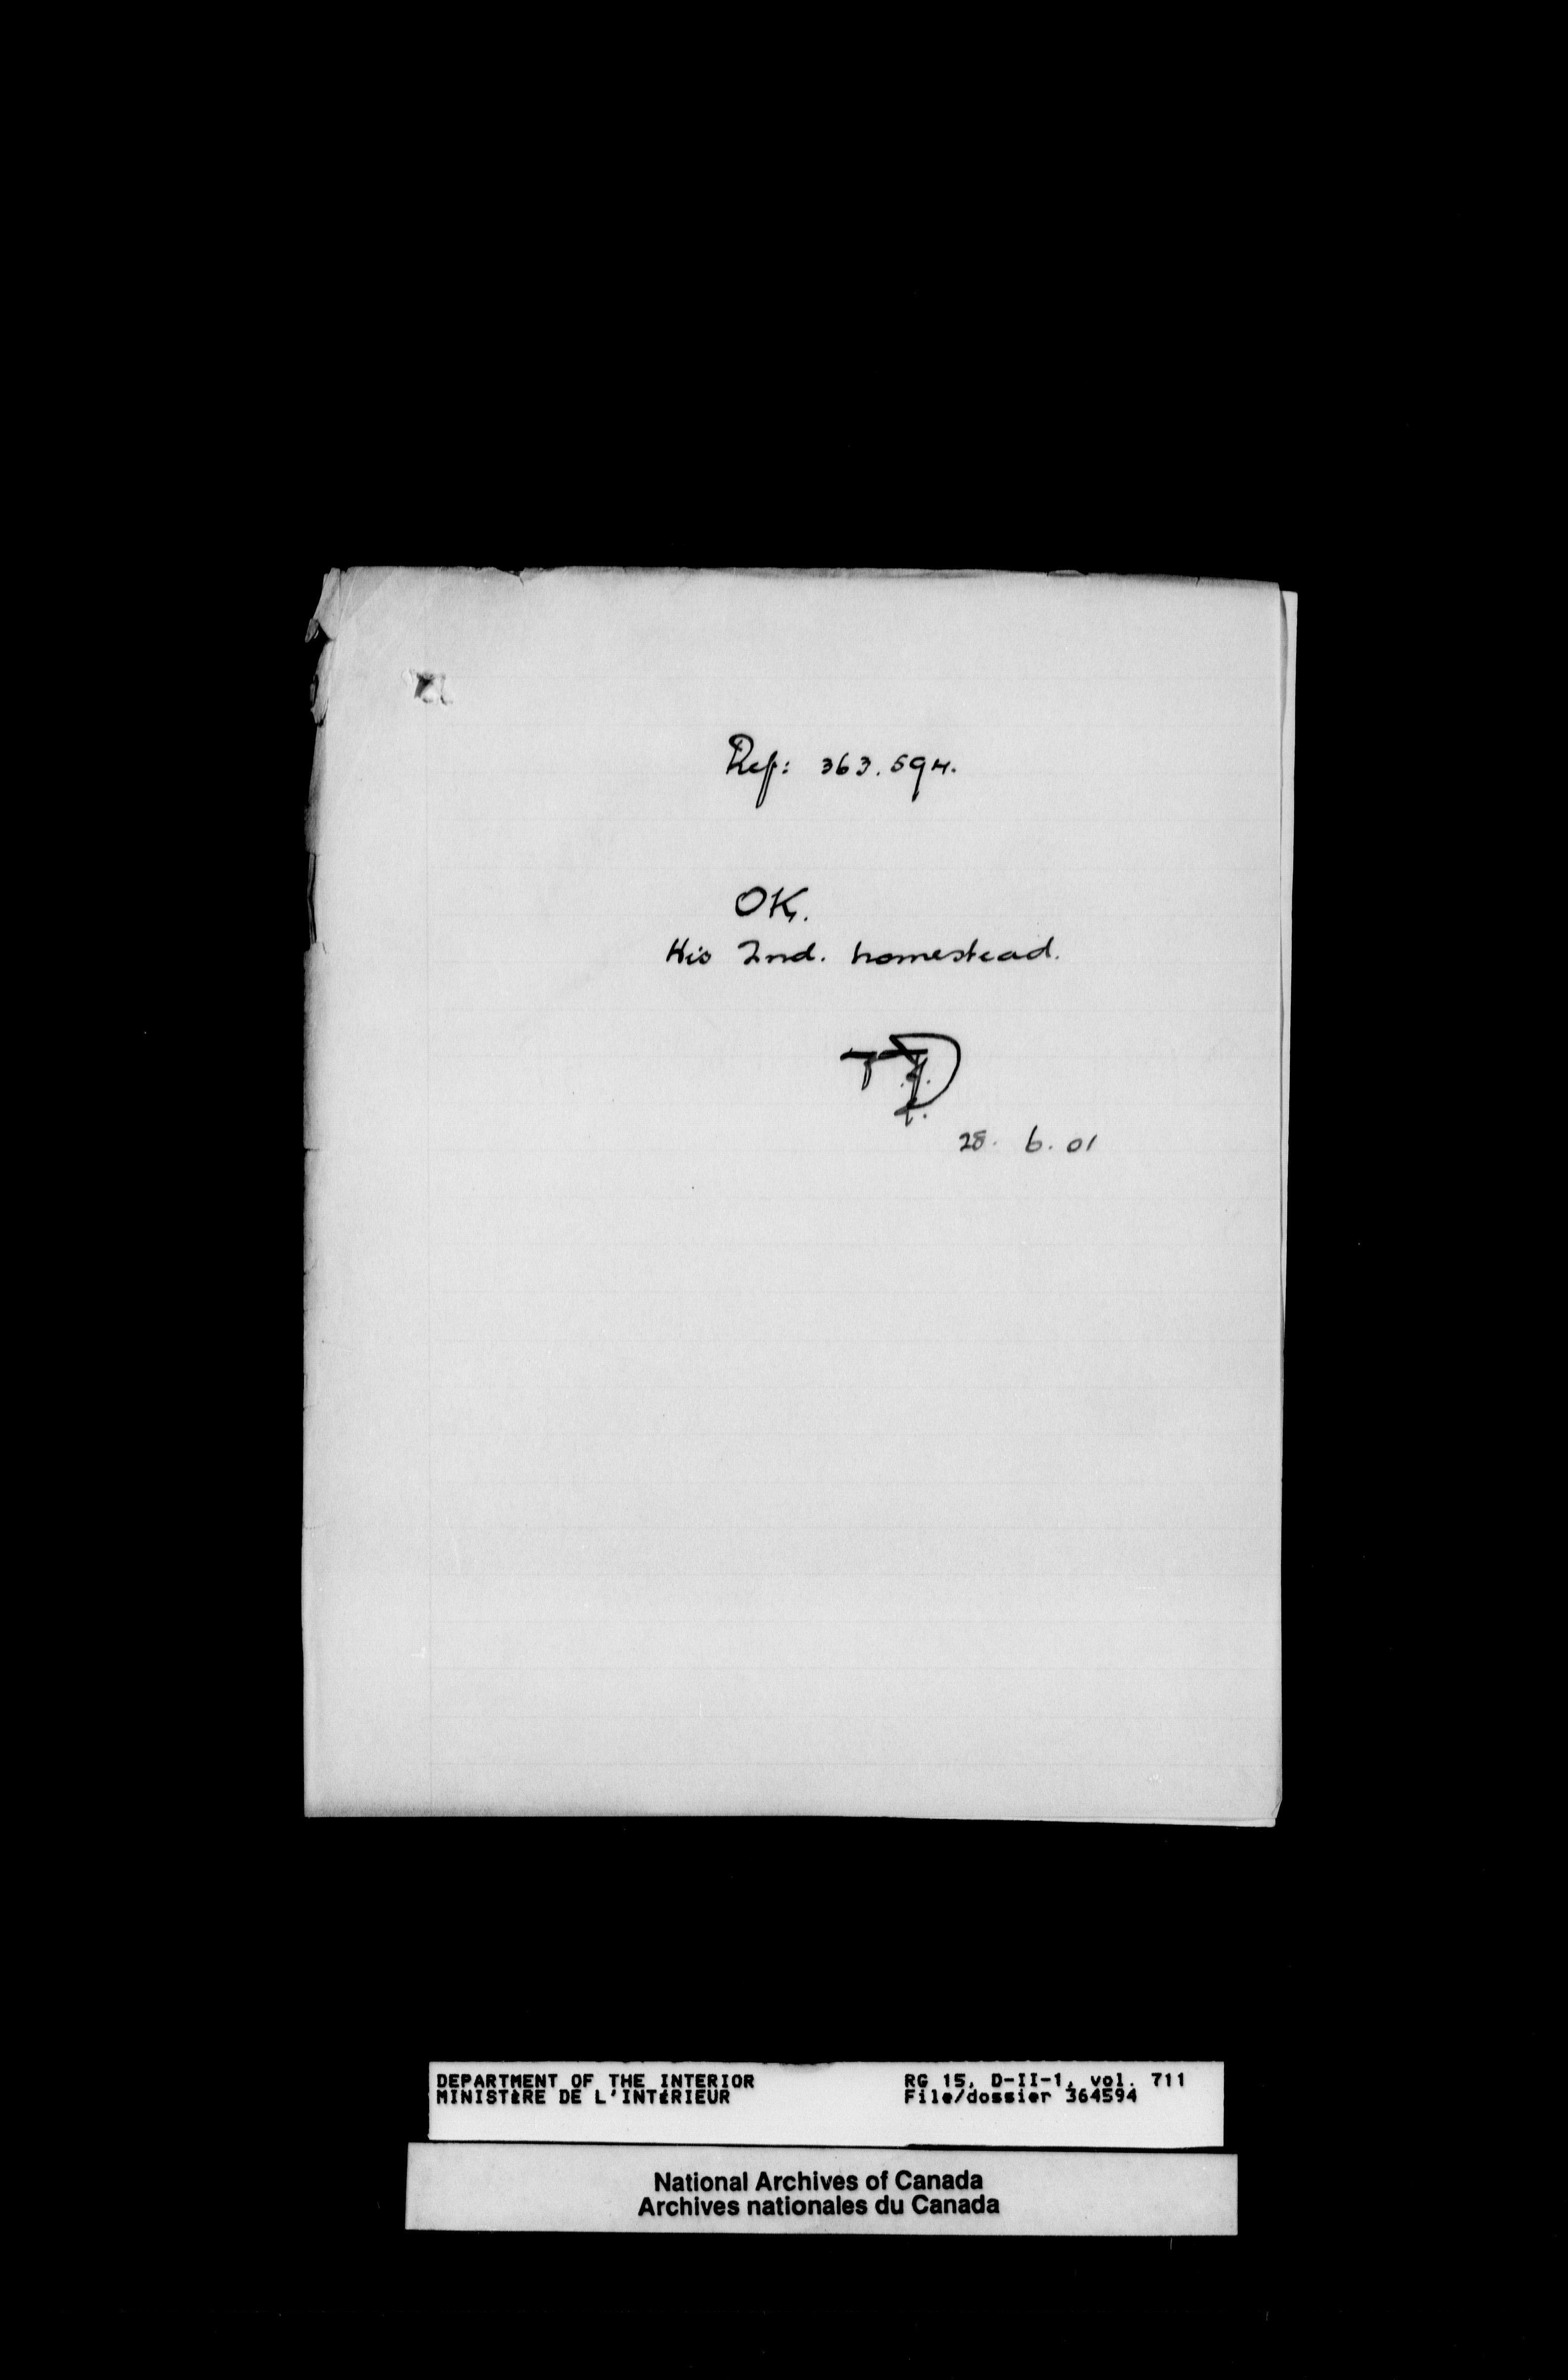 Ref: 363.594.
OK.
His 2nd. homestead.
28. 6. 01
DEPARTMENT OF THE INTERIOR
MINISTÈRE DE L'INTÉRIEUR
RG 15, D-II-1, vol. 711
File/dossier 364594
National Archives of Canada
Archives nationales du Canada